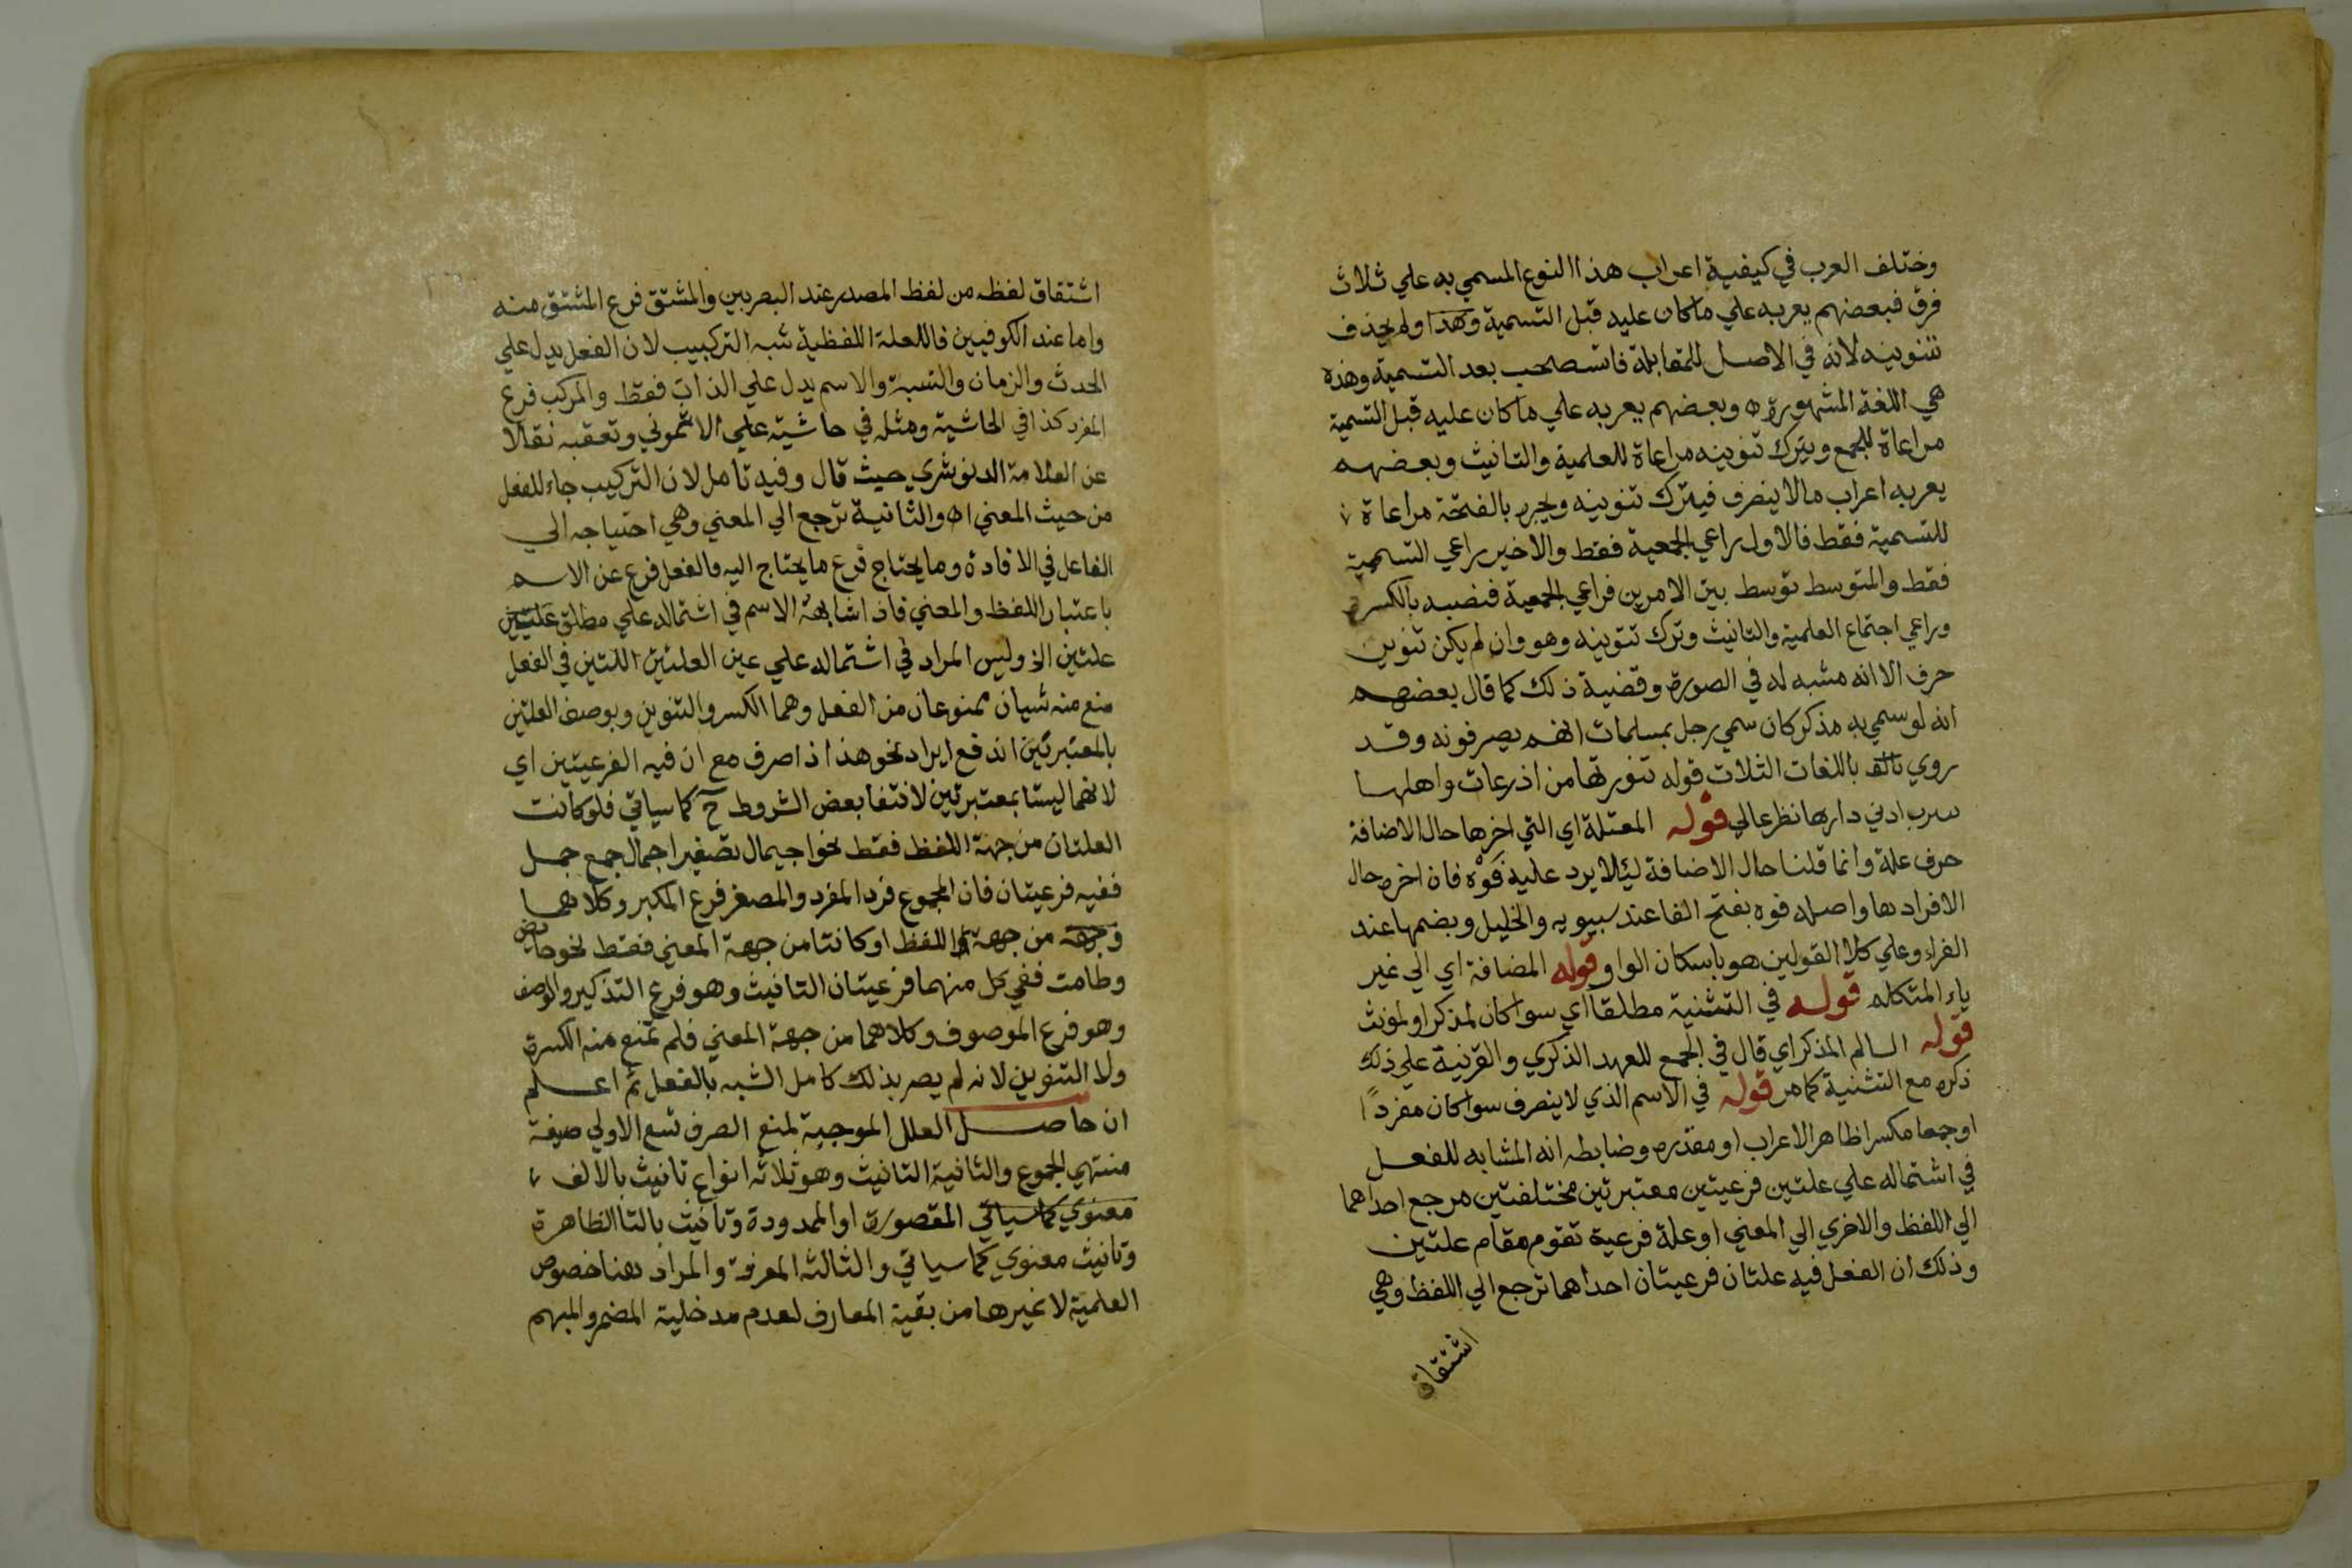 وختلف العرب في كيفية اعراب هذا النوع المسمي به علي ثلاث
فرق فبعضهم يعربه علي ماكان عليه قبل التسمية وهذا ولم يحذف
تنوينه لانه في الاصل للمقابلة فاتسصحب بعد التسمية وهذه
هي اللغة المشهورة وبعضهم يعربه علي ماكان عليه قبل التسمية
مراعاة للجمع ويترك تنوينه مراعاة للعلمية والتانيث وبعضهم
يعربه اعراب مالا ينصرف فيترك تنوينه ويجره بالفتحة مراعاة
للتسمية فقط فالاول راعي الجمعية فقط والاخير راعي التسمية
فقط والمتوسط توسط بين الامرين فراعي الجمعية فنصبه بالكسرة
وراعي اجتماع العلمية والتانيث وترك تنوينه وهو وان لم يكن تنوين
صرف الا انه مشبه له في الصورة وقضية ذلك كما قال بعضهم
انه لو سمي به مذكر كان سمي رجل بمسلمات انهم يصرفونه وقد
روي باللغات الثلاث قوله تنورتها من اذرعات واهلها
بيثرب ادني دارها نظر عالي قوله المعتلة اي التي اخرها حال الاضافة
حرف علة وانما قلنا حال الاضافة ليلا يرد عليه فوه فان اخره حال
الافراد ها واصله فوه بفتح الفا عند سيبويه والخليل وبضمها عند
الفراء وعلي كلا القولين هو باسكان الواو قوله المضافة اي الي غير
ياء المتكلم قوله في التثنية مطلقا اي سوا كان لمذكر او لمونث
قوله السالم المذكر اي قال في الجمع للعهد الذكري والقرينة علي ذلك
ذكره مع التثنية كما مر قوله في الاسم الذي لا ينصرف سوا كان مفردًا
او جمعا مكسرا ظاهر الاعراب او مقدره وضابطه انه المشابه للفعل
في اشتماله علي علتين فرعيتين معتبرتين مختلفتين مرجع احداهما
الي اللفظ والاخري الي المعني او علة فرعية تقوم مقام علتين
وذلك ان الفعل فيه علتان فرعيتان احداهما ترجع الي اللفظ وهي
اشتقاق
اشتقاق لفظه من لفظ المصدر عند البصريين والمشتق فرع المشتق منه
واما عند الكوفيين فاللعلة اللفظية شبه التركيب لان الفعل يدل علي
الحدث والزمان والنسبة والاسم يدل علي الذات فقط والمركب فرع
المفرد كذا في الحاشية ومثله في حاشيته علي الاشموني وتعقبه نقالا
عن العلامة الدنوشري حيث قال وفيه تامل لان التركيب جاء للفعل
من حيث المعني اه والثانية ترجع الي المعني وهي احتياجه الي
الفاعل في الافادة وما يحتاج فرع ما يحتاج اليه فالفعل فرع عن الاسم
باعتبار اللفظ والمعني فاذا شابهه الاسم في اشتماله علي مطلق علتين
علتين الخ وليس المراد في اشتماله علي عين العلتين اللتين في الفعل
منع منه شيان ممنوعان من الفعل وهما الكسر والتنوين وبوصف العلتين
بالمعتبرتين اندفع ايراد نحو هذا اذا صرف مع ان فيه الفرعيتين اي
لانهما ليستا بمعتبرتين لانتفا بعض الشروط ح كما سياتي فلو كانت
العلتان من جهة اللفظ فقط نحو اجيمال تصغير اجمال جمع جمل
ففيه فرعيتان فان المجموع فرد المفرد والمصغر فرع المكبر وكلاهما
وجهة من جهة اللفظ او كانتا من جهة المعني فقط نحو حايض
وطامت ففي كل منهما فرعيتان التانيث وهو فرع التذكير والوصف
وهو فرع الموصوف وكلاهما من جهة المعني فلم تمنع منه الكسرة
ولا التنوين لانه لم يصر بذلك كامل الشبه بالفعل ثم اعلم
ان حاصل العلل الموجبة لمنع الصرف تسع الاولي صيغة
منتهي الجموع والثانية التانيث وهو ثلاثه انواع تانيث بالالف
معنوي كما سياتي المقصورة او الممدودة وتانيث بالتا الظاهرة
وتانيث معنوي كما سياتي والثالثه المعرفة والمراد هنا خصوص
العلمية لا غيرها من بقية المعارف لعدم مدخلية المضمر والمبهم